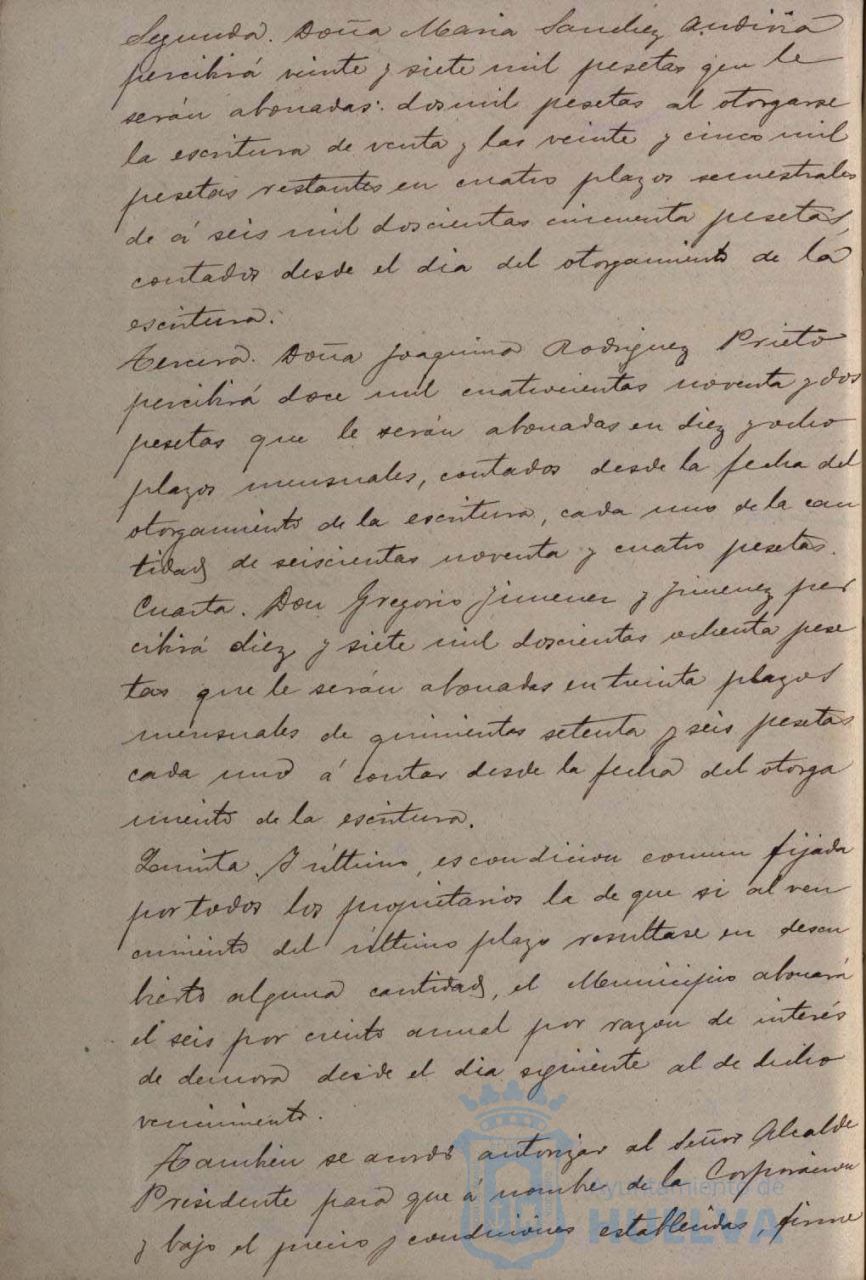 Segunda. Doña Maria Sanchez Andivia
percibirá veinte y siete mil pesetas que le
serán abonadas: dos mil pesetas al otorgarse
la escritura de venta y las veinte y cinco mil
pesetas restantes en cuatro plazos semestrales
de á seis mil doscientas cincuenta pesetas,
contados desde el dia del otorgamiento de la
escritura.
Tercera. Doña Joaquina Rodriguez Prieto
percibirá doce mil cuatrocientas noventa y dos
pesetas que le serán abonadas en diez y ocho
plazos mensuales, contados desde la fecha del
otorgamiento de la escritura, cada uno de la can
tidad de seiscientas noventa y cuatro pesetas.
Cuarta. Don Gregorio Jimenez y Jimenez per
cibirá diez y siete mil doscientas ochenta pese
tas que le serán abonadas en treinta plazos
mensuales de quinientas setenta y seis pesetas
cada uno á contar desde la fecha del otorga
miento de la escritura.
Quinta. Y último, es condicion comun fijada
por todos los propietarios la de que si al ven
cimiento del último plazo resultase en descu
bierto alguna cantidad, el Municipio abonará
el seis por ciento anual por razon de interés
de demora desde el dia siguiente al de dicho
vencimiento.
Tambien se acordó autorizar al Señor Alcalde
Presidente para que á nombre de la Corporacion
y bajo el precio y condiciones establecidas, firme
Ayuntamiento de
HUELVA